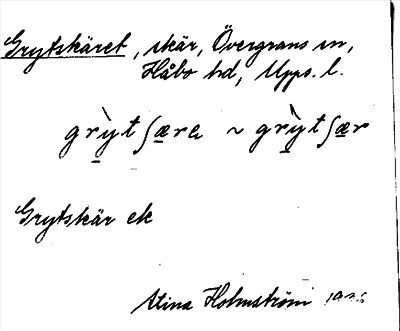 Grytskäret, skär, Övergrans sn,
Håbo hd, Upps. l.
grỳtʃæra ~ grỳtʃær
Grytskär ek
Stina Holmström